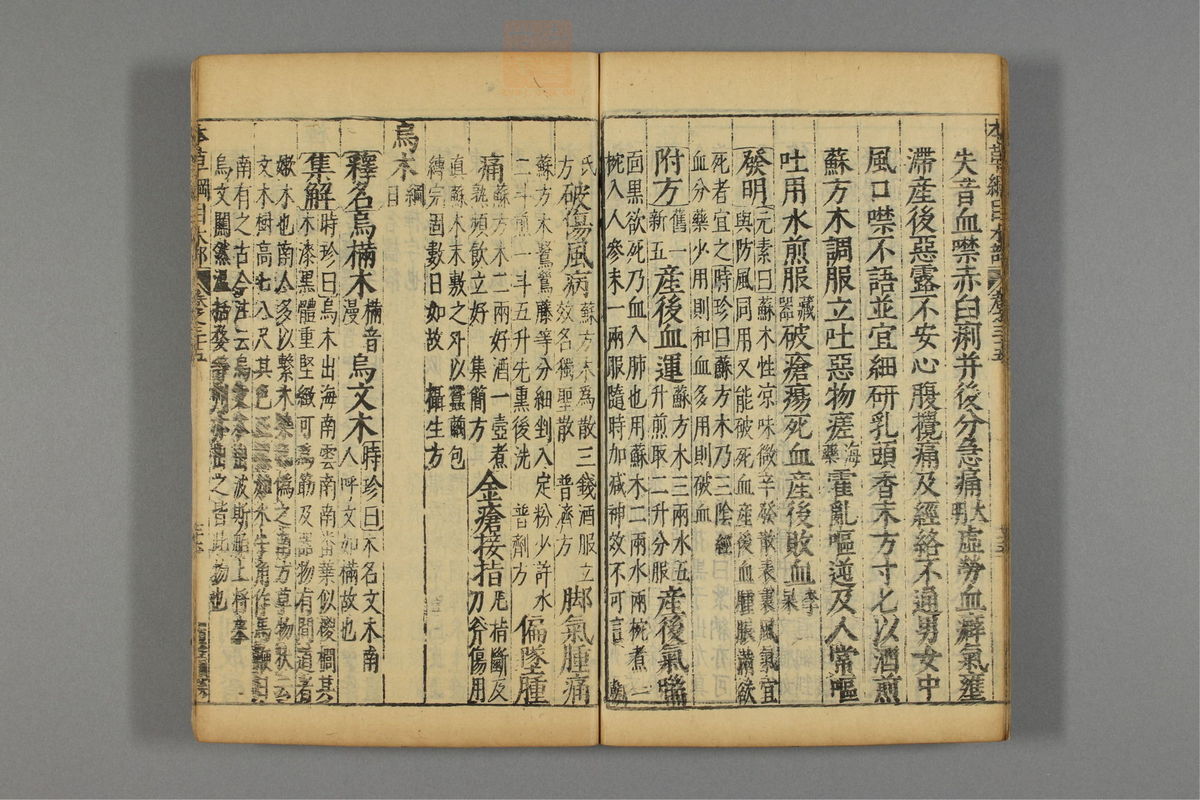 失音血噤赤白痢并後分急痛大明虛勞血癖氣壅
滯產後惡露不安心腹攪痛及經絡不通男女中
風口噤不語並宜細研乳頭香末方寸匕以酒煎
蘇方木調服立吐惡物瘥海藥霍亂嘔逆及人常嘔
吐用水煎服藏器破瘡瘍死血產後敗血李杲
發明元素曰蘇木性涼味微辛發散表裏風氣宜
與防風同用又能破死血產後血腫脹滿欲
死者宜之時珍曰蘇方木乃三陰經
血分藥少用則和血多用則破血
附方舊一新五產後血運蘇方木三兩水五升煎取二升分服產後氣喘
面黑欲死乃血入肺也用蘇木二兩水兩椀煮一
椀入人參末一兩服隨時加減神效不可言 胡
氏方破傷風病蘇方木為散三錢酒服立效名獨聖散 普濟方脚氣腫痛
蘇方木鷺鷥藤等分細剉入定粉少許水
二斗煎一斗五升先熏後洗 普劑方偏墜腫
痛蘇方木二兩好酒一壺煮熟頻飲立好 集簡方金瘡接指凡指斷及刀斧傷用
真蘇木末敷之外以蠶繭包
縳完固數日如故 攝生方
烏木綱目
釋名烏樠木樠音漫烏文木時珍曰木名文木南人呼文如樠故也
集解時珍曰烏木出海南雲南南番葉似椶櫚其
木漆黑體重堅緻可為筯及器物有間道者
嫩木也南人多以繫木染色偽之南方草物狀云
文木樹高七八尺其色正黑如水牛角作馬鞭日
南有之古今注云烏文木出波斯舶上將來
烏文闌然溫括婺等州亦出之皆此物也
本草綱目木部 卷之三十五
本草綱目木部 卷之三十五